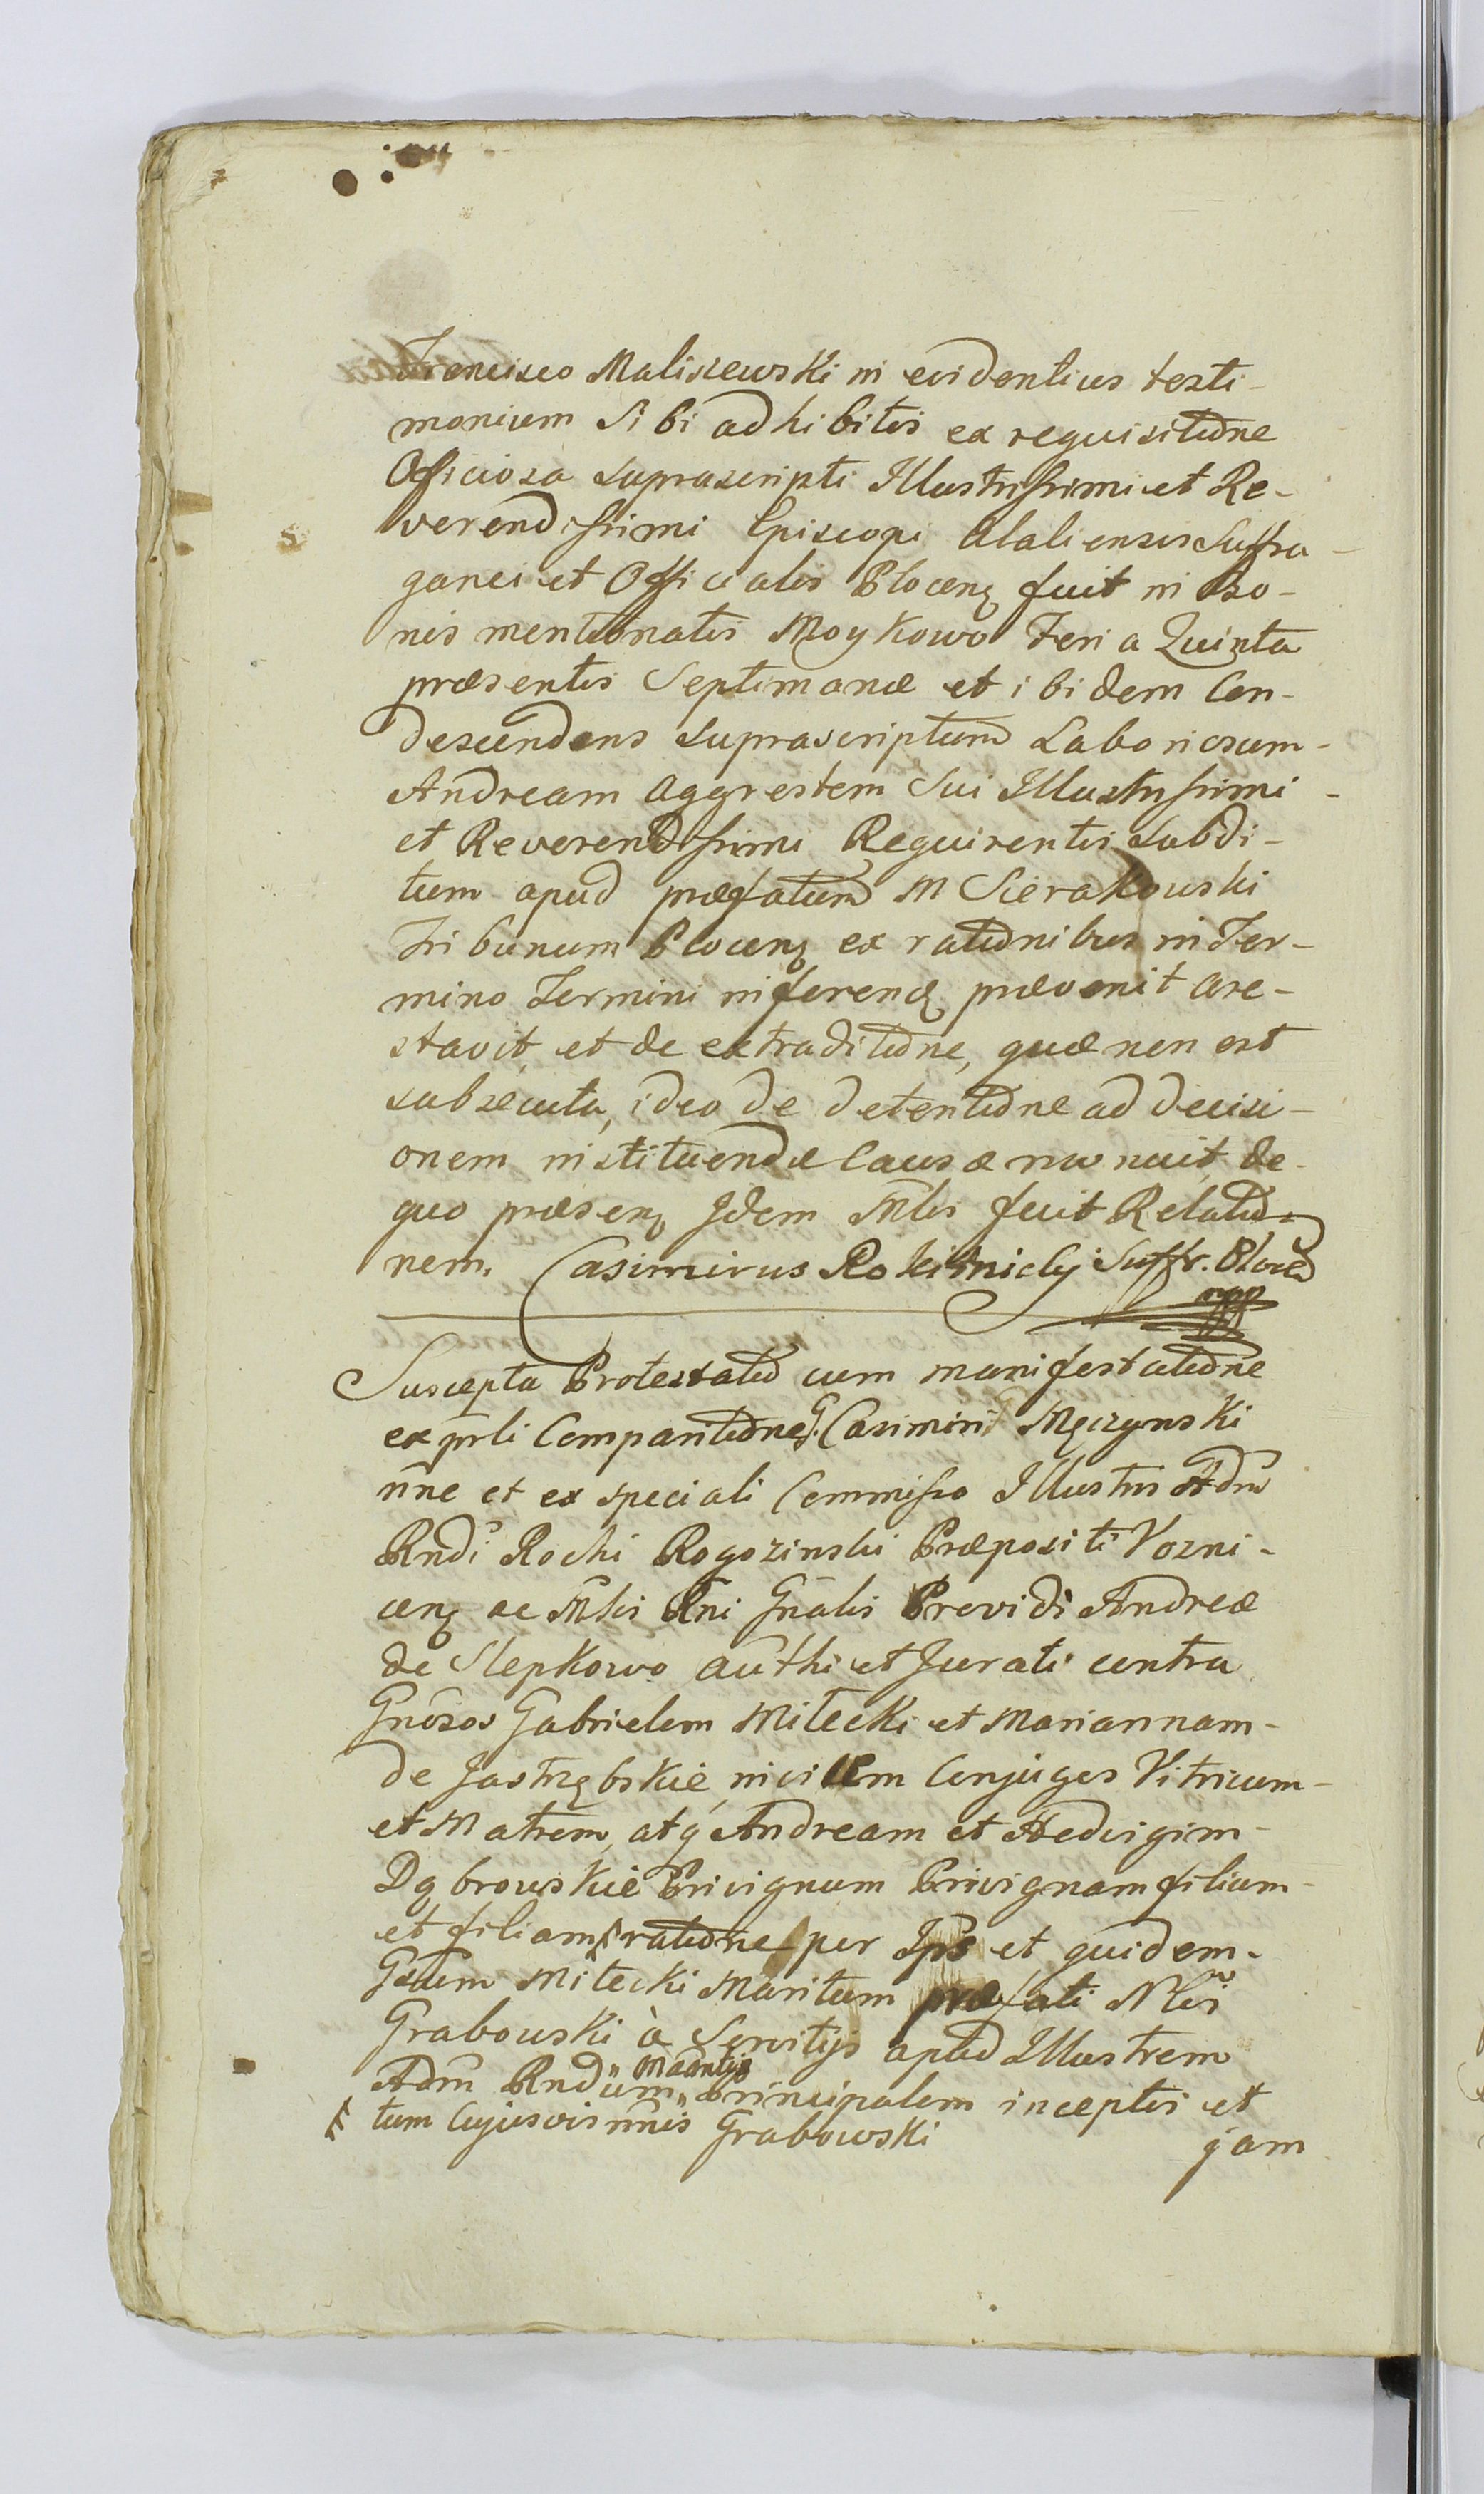 Francisco Maliszewski in evidentius testi-
monium sibi adhibitis ex requisitione
Officiosa suprascripti Illustrissimi et Re-
verendissimi Episcopi Alaliensis Suffra-
ganei et Officialis Plocen fuit in Bo-
nis mentionatis Moykowo Feria Quinta
præsentis Septimanæ et ibidem Con-
descendens suprascriptum Laboriosum
Andream Aggrestem Sui Illustrissimi
et Reverendissimi Requirentis Subdi-
tum apud præfatum M Sierakowski
Tribunum Plocen ex rationibus in Ter-
mino Termini inferen prævenit are-
stavit, et de extraditione, quæ non est
subsecuta, ideo de detentione ad decisi-
onem instituendæ Causæ monuit, de
quo præsen Idem Mlis fecit Relatio-
nem. Casimirus Rokitnicky Suffr. Plocen
mpp
Suscepta Protestatio cum manifestatione
ex prli Comparitione G. Casimiri Męczynski
nne et ex speciali Commisso Illustris Adm
Rndi Rochi Rogozinski Præpositi Vozni-
cen ac Mlis Rni Gnalis Providi Andreæ
de Slepkowo authi et Jurati contra
Gnosos Gabrielem Milecki et Mariannam
de Jastrzębskie invicem Conjuges Vitricum
et Matrem, atq Andream et Hedvigim
Dąbrowskie Privignum Privignam filium
et filiam ratione per Ips et quidem
Gsum Milecki Maritum præfati Nlis
Grabowski à Servitijs apud Illustrem
Adm Rndum Principalem inceptis et
tum Cujusvis nnis Grabowski
jam